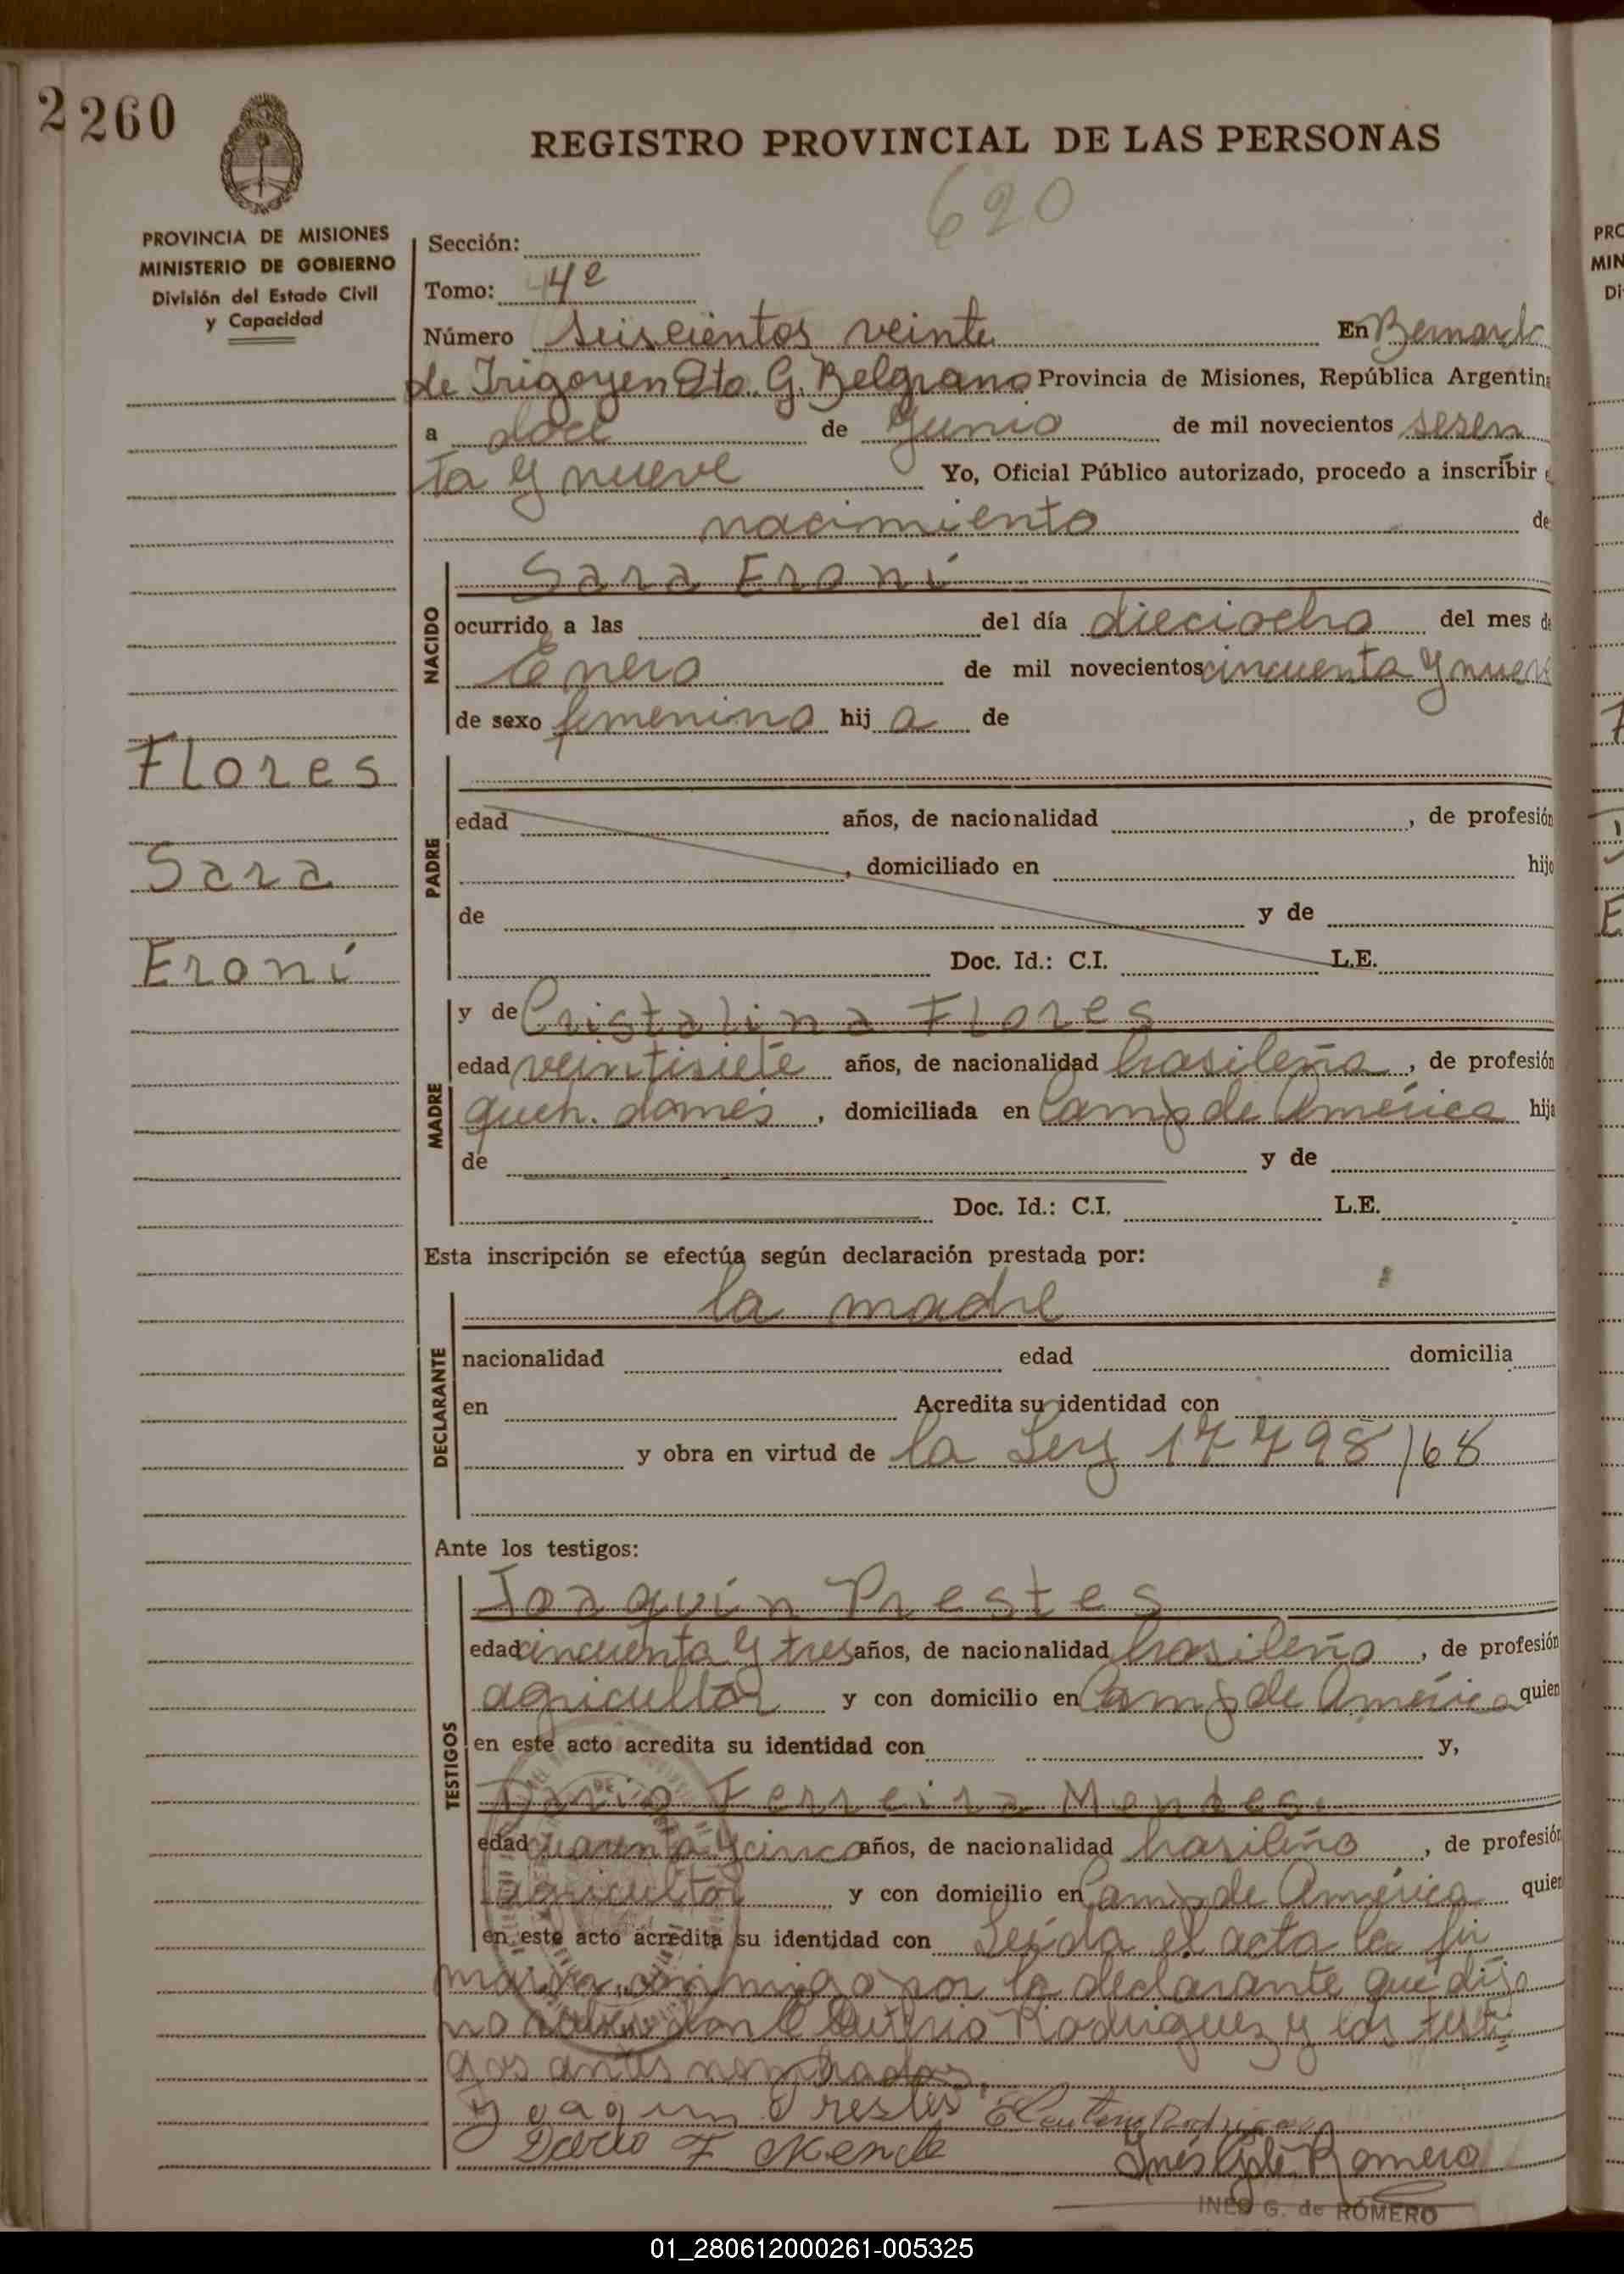 2260
REGISTRO PROVINCIAL DE LAS PERSONAS
620
PROVINCIA DE MISIONES
MINISTERIO DE GOBIERNO
División del Estado Civil
y Capacidad
Sección:
Tomo: 4º
Número seiscientos veinte En Bernardo
de Irigoyen Dto. G. Belgrano Provincia de Misiones, República Argentin
a doce de Junio de mil novecientos sesen
ta y nueve Yo, Oficial Público autorizado, procedo a inscribir e
nacimiento de
NACIDO
Sara Eroní
ocurrido a las del día dieciocho del mes de
Enero de mil novecientos cincuenta y nueve
de sexo femenino hij a de
Flores
Sara
Eroní
PADRE
edad años, de nacionalidad , de profesión
, domiciliado en hijo
de y de
Doc. Id.: C.I. L.E.
MADRE
y de Cristalina Flores
edad veintisiete años, de nacionalidad brasileña, de profesión
queh. domés, domiciliada en Camp de América hija
de y de
Doc. Id.: C.I. L.E.
Esta inscripción se efectúa según declaración prestada por:
DECLARANTE
la madre
nacionalidad edad domicilia
en Acredita su identidad con
y obra en virtud de la Ley 17798/68
Ante los testigos:
TESTIGOS
Joaquín Prestes
edad cincuenta y tres años, de nacionalidad brasileño, de profesión
agricultor y con domicilio en Camp de América quien
en este acto acredita su identidad con y,
Dario Ferreira Mendes.
edad cuarenta y cinco años, de nacionalidad brasileño, de profesión
agricultor y con domicilio en Camp de América quien
en este acto acredita su identidad con Leída el acta la fir
man conmigo por la declarante que dijo
no saber don Eleuterio Rodriguez y los testi
gos antes nombrados.
Joaquim Prestes Eleuterio Rodriguez
Dario F Mende Inés G. de Romero
INES G. de ROMERO
PRO
MIN
Di
01_280612000261-005325